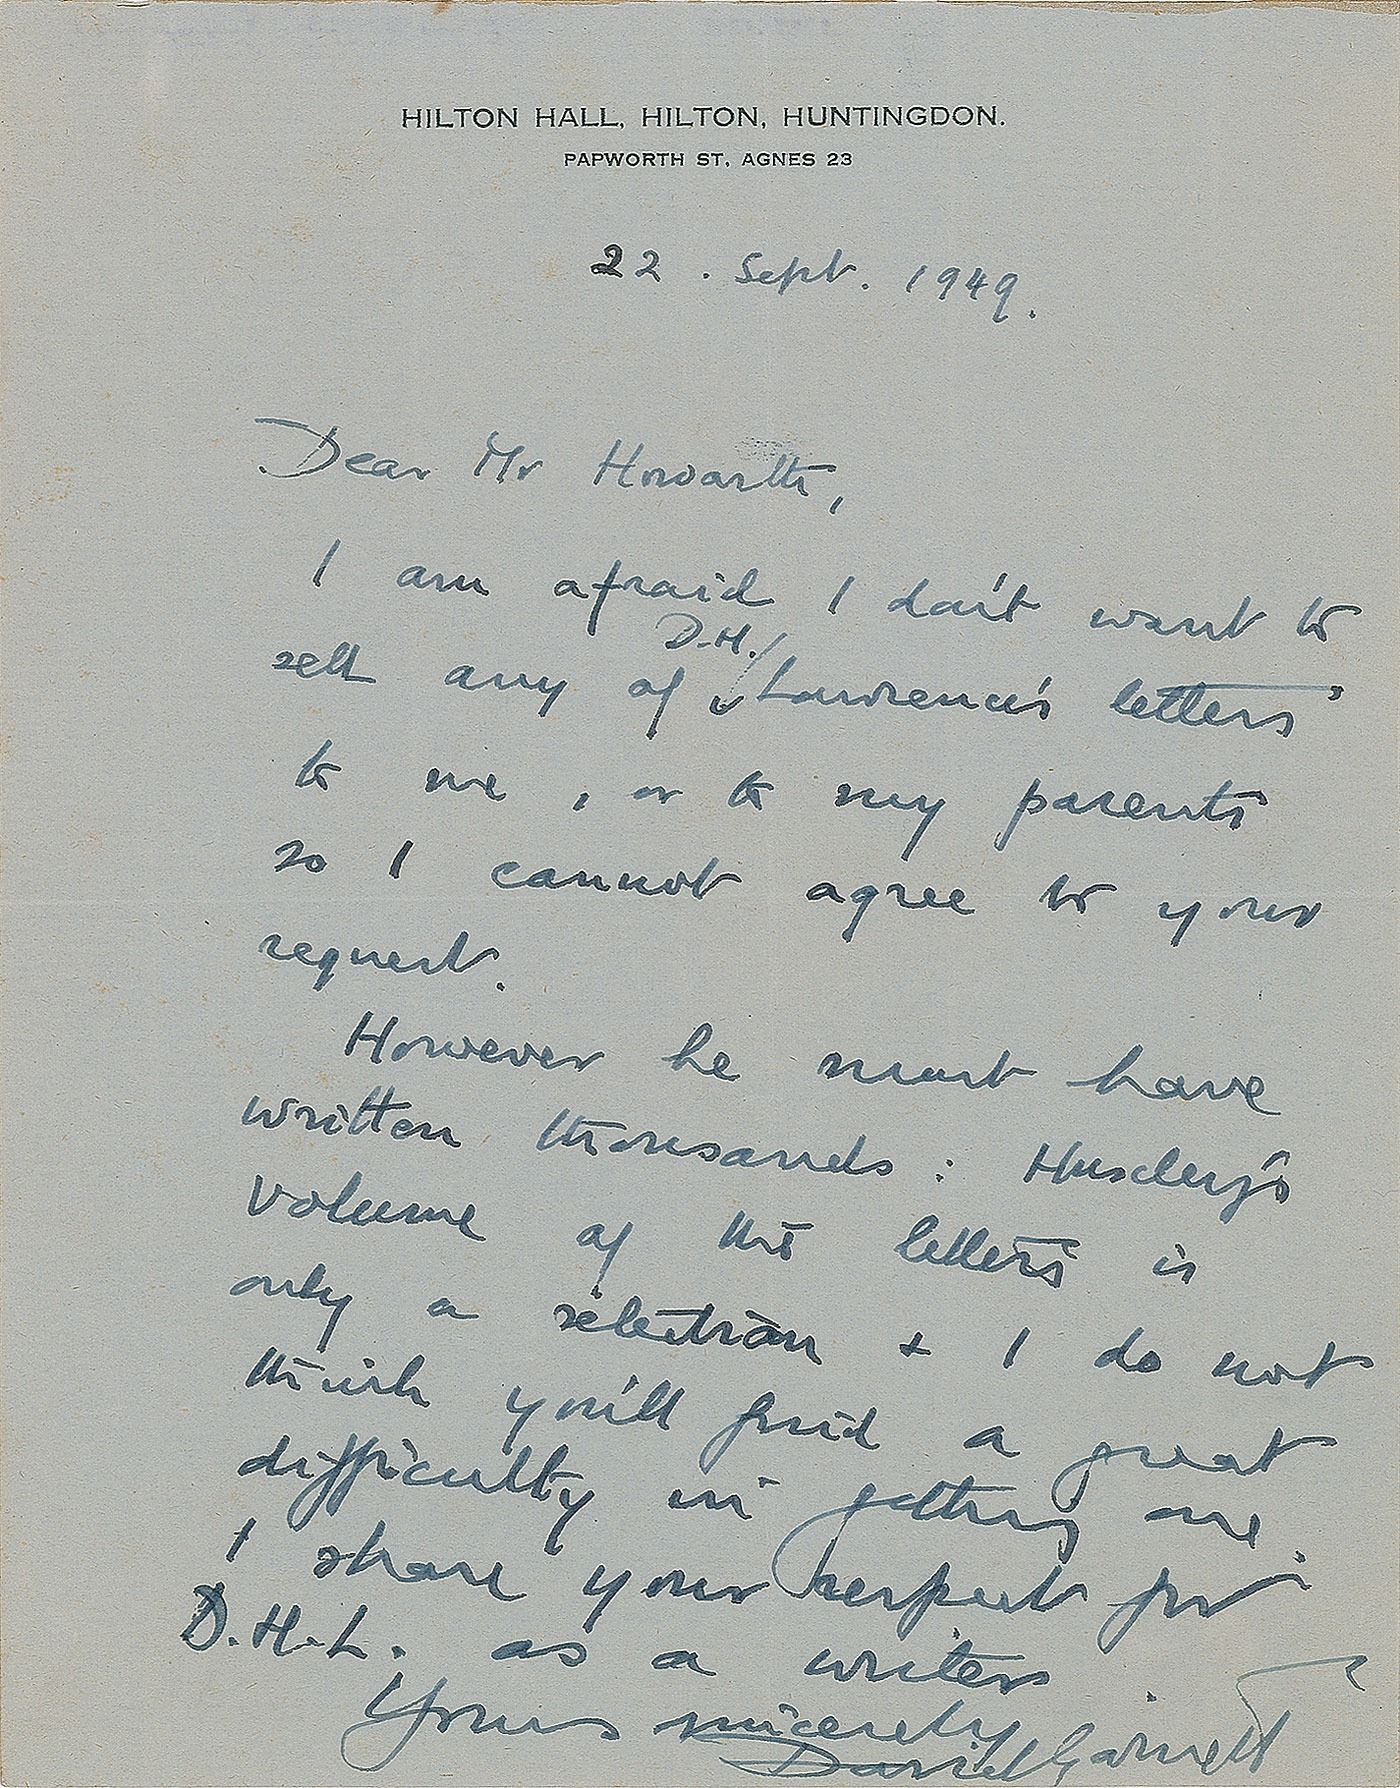 HILTON HALL, HILTON, HUNTINGDON.
PAPWORTH ST, AGNES 23
22 . Sept. 1949.
Dear Mr Howarth,
I am afraid I don't want to
sell any of D.H. Lawrence's letters
to me, or to my parents
so I cannot agree to your
request.
However he must have
written thousands : Huxley's
volume of the letters is
only a selection + I do not
think you'll find a great
difficulty in getting one.
I share your respect for
D.H.L. as a writer
Yours sincerely
David Garnett